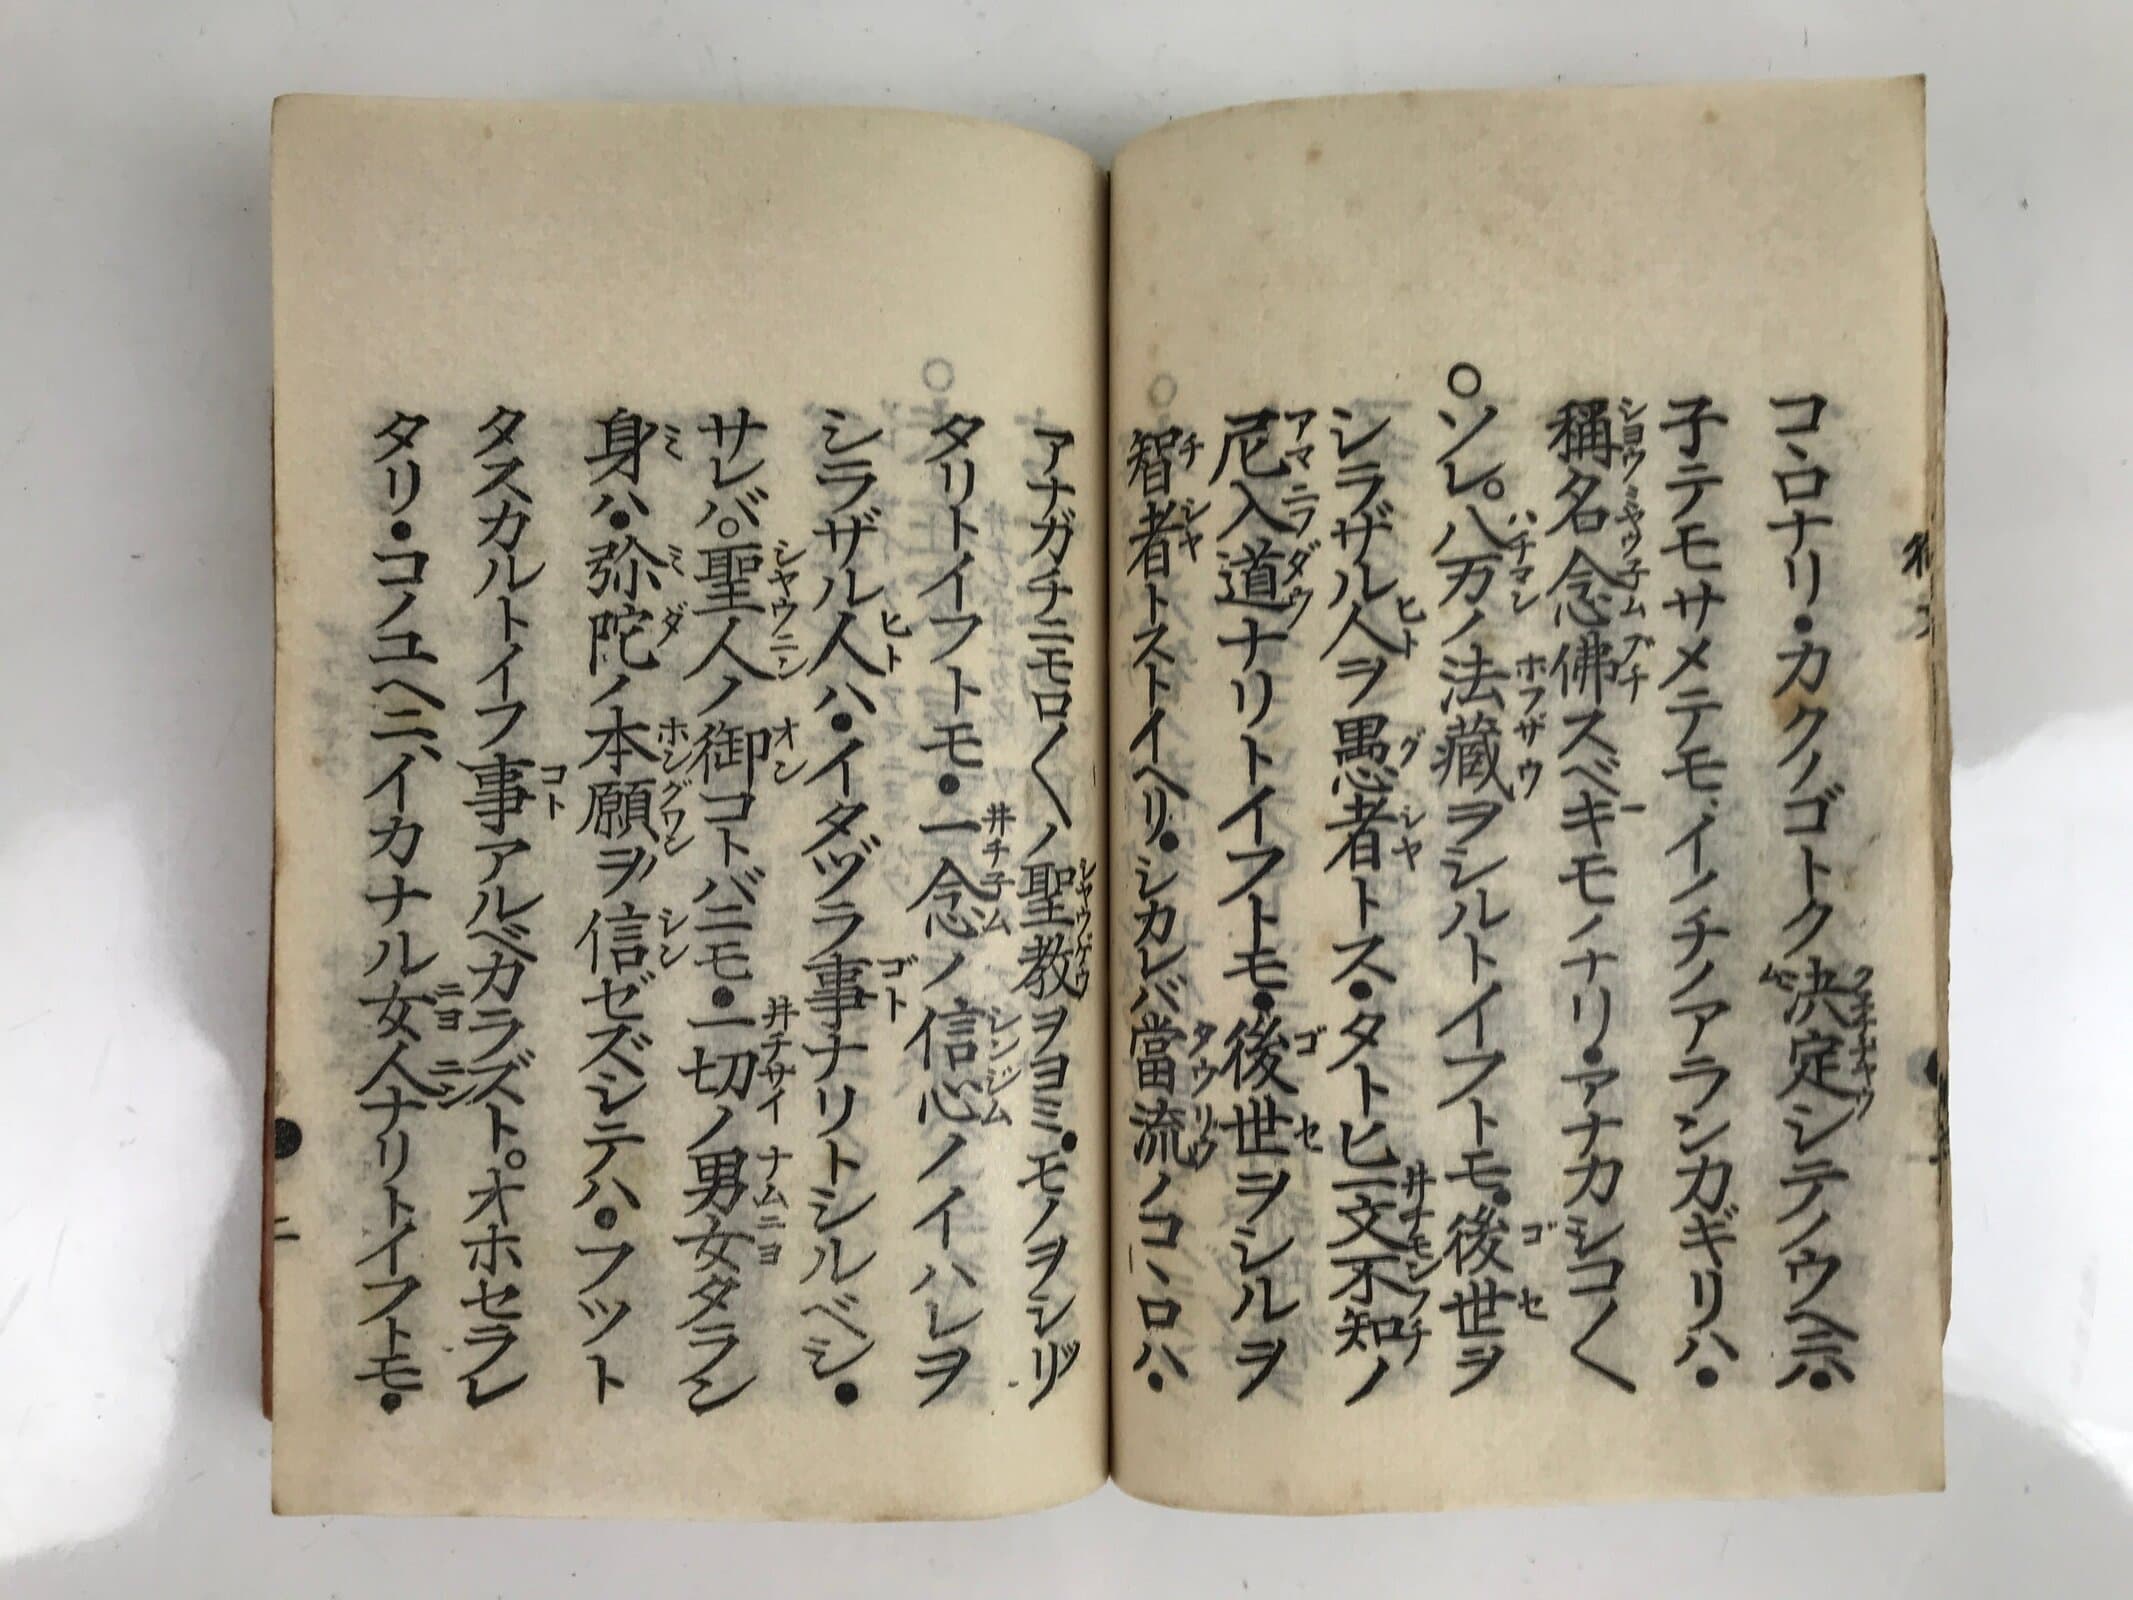 コヽロナリ・カクノゴトク決定シテノウヘニハ・
子テモサメテモイノチノアランカギリハ・
稱名念佛スベキモノナリ・アナカシコ〱
〇ソレ。八万ノ法藏ヲシルトイフトモ。後世ヲ
シラザル人ヲ愚者トス・タトヒ一文不知ノ
尼入道ナリトイフトモ・後世ヲシルヲ
智者トストイヘリ。シカレバ當流ノコヽロハ・
アナガチニモロ〱ノ聖教ヲヨミ・モノヲシリ
タリトイフトモ・一念ノ信心ノイハレヲ
シラザル人ハ・イタヅラ事ナリトシルベシ・
サレバ。聖人ノ御コトバニモ・一切ノ男女タラン
身ハ・弥陀ノ本願ヲ信ゼズシテハ・フツト
タスカルトイフ事アルベカラズト。オホセラレ
タリ・コノユヘニイカナル女人ナリトイフトモ・
二